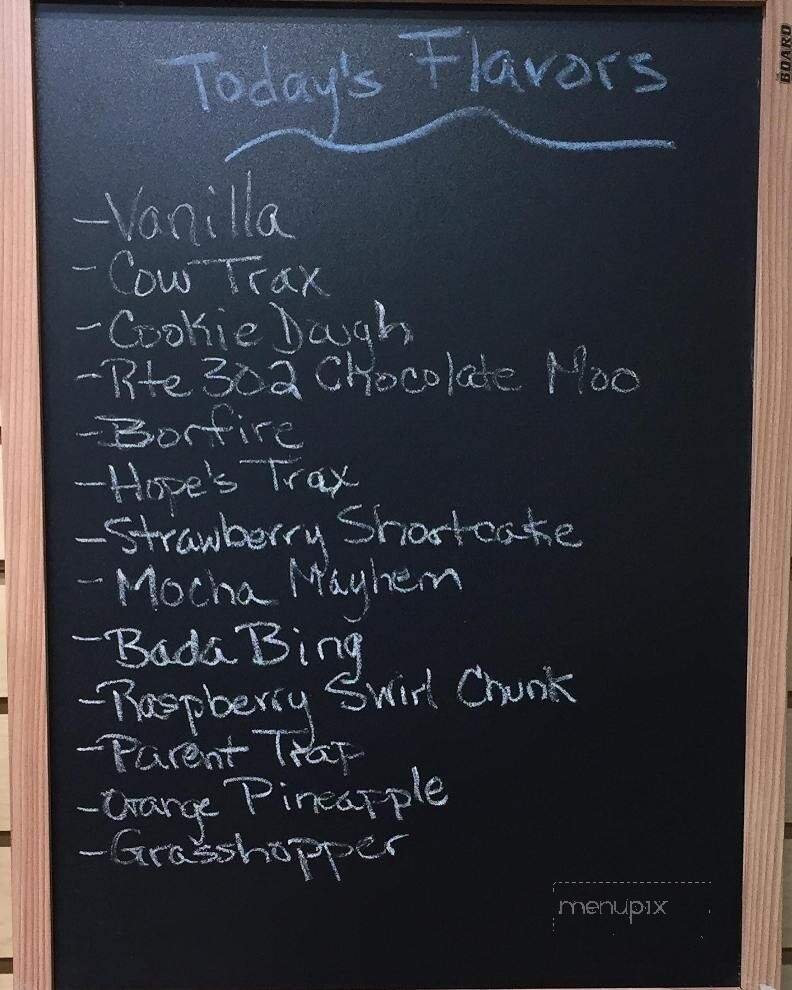 Today's Flavors
-Vanilla
-Cow Trax
-Cookie Dough
-Rte 302 Chocolate Moo
-Bonfire
-Hope's Trax
-Strawberry Shortcake
-Mocha Mayhem
-Bada Bing
-Raspberry Swirl Chunk
-Parent Trap
-Orange Pineapple
-Grasshopper
menupix
BOARD